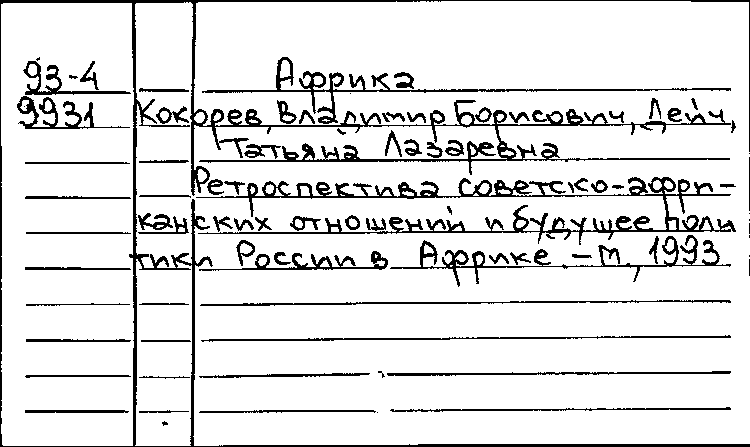 93-4 Африка
9931 Кокорев, Владимир Борисович, Дейч,
Татьяна Лазаревна
Ретроспектива советско-афри-
канских отношений и будущее поли
тики России в Африке. - М., 1993